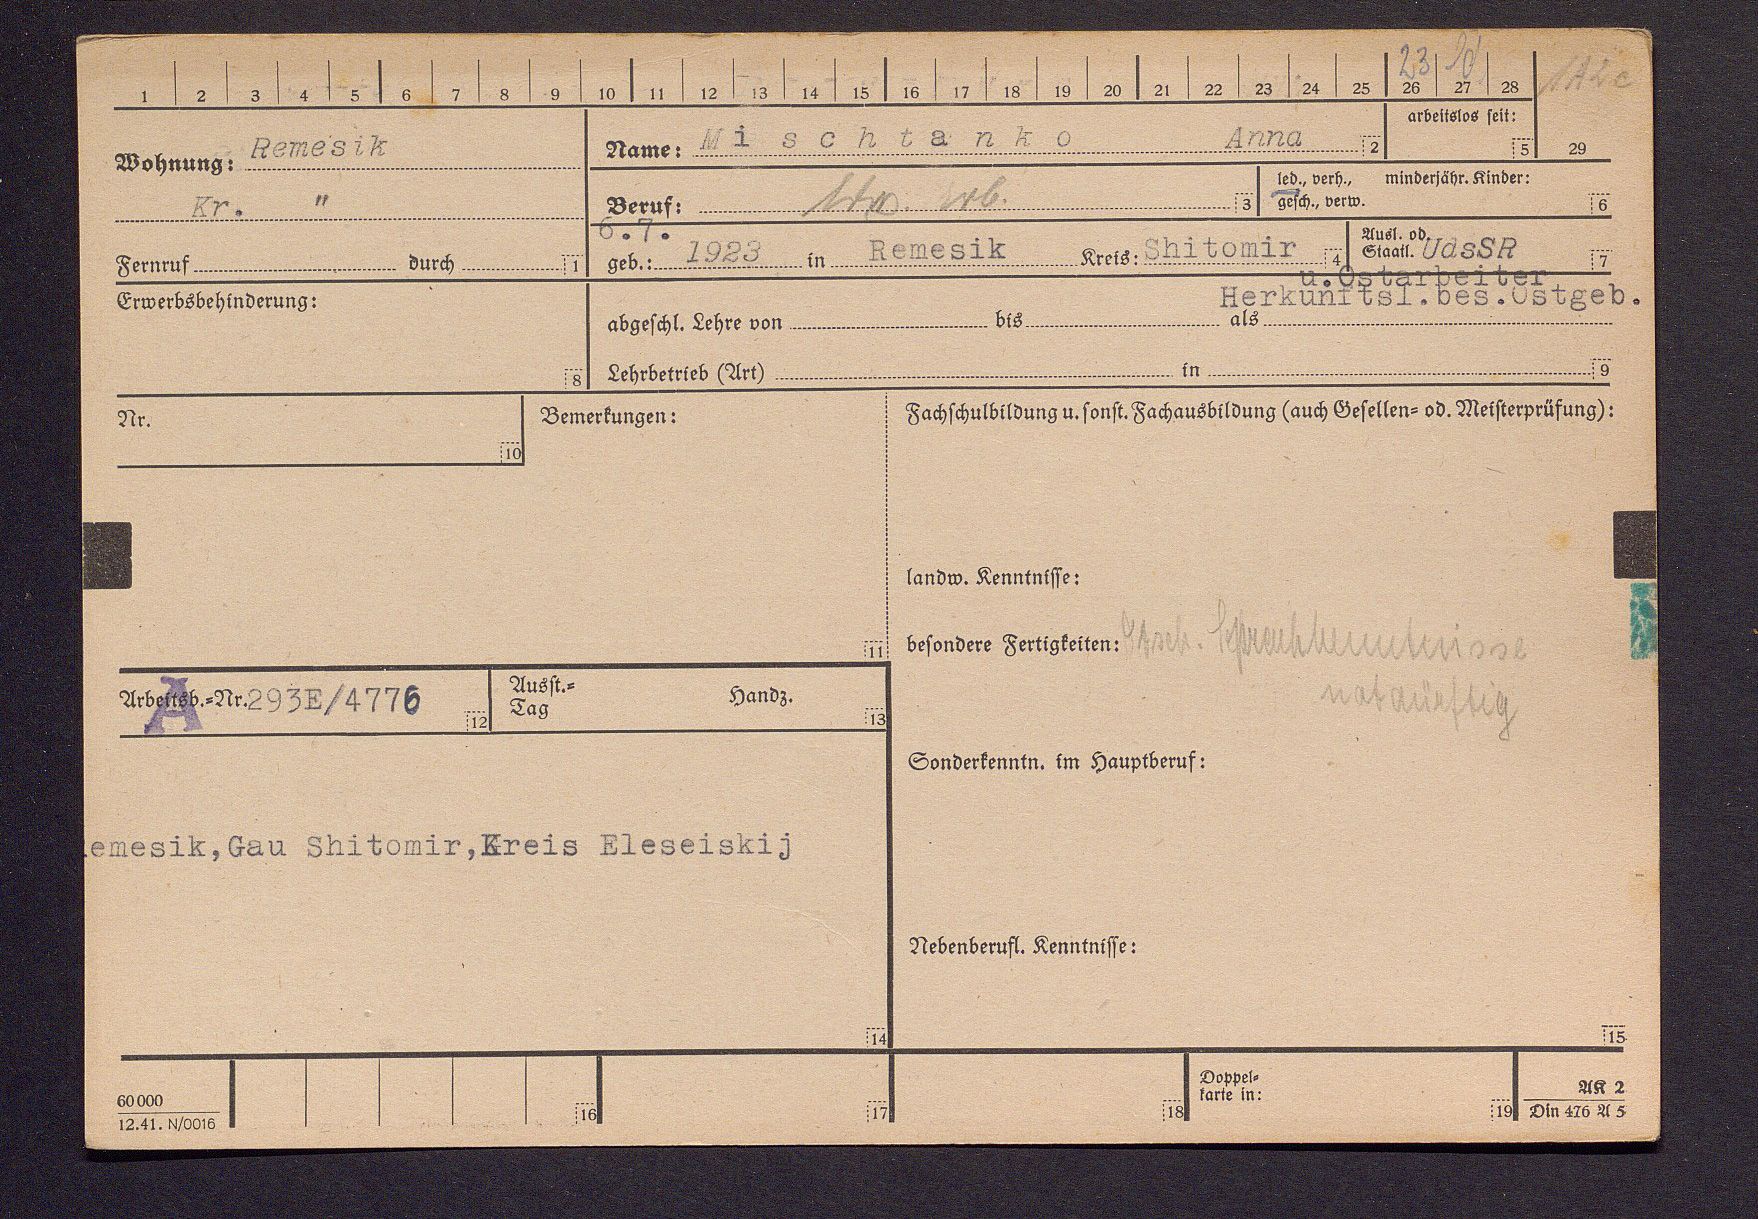 1 2 3 4 5 6 7 8 9 10 11 12 13 14 15 16 17 18 19 20 21 22 23 24 25 26 27 28
23
Wohnung: Remesik
Kr. "
Fernruf durch 1
Name: Mischtanko Anna 2
arbeitslos seit: 5
29
Beruf: 3
led., verh., minderjähr. Kinder:
gesch., verw. 6
6.7.
geb.: 1923 in Remesik Kreis: Shitomir 4
Ausl. od.
Staatl. UdsSR 7
u.Ostarbeiter
Herkunftsl.bes.Ostgeb.
Erwerbsbehinderung:
8
abgeschl. Lehre von bis als
Lehrbetrieb (Art) in 9
Nr.
10
Bemerkungen:
11
Fachschulbildung u. sonst. Fachausbildung (auch Gesellen= od. Meisterprüfung):
landw. Kenntnisse:
besondere Fertigkeiten: Sprachkenntnisse
notdürftig
A
Arbeitsb.=Nr. 293E/4776 12
Ausst.=
Tag Handz. 13
Sonderkenntn. im Hauptberuf:
emesik,Gau Shitomir,Kreis Eleseiskij
Nebenberufl. Kenntnisse:
14
15
60000
12.41. N/0016
16
17
18
Doppel=
karte in:
19
AK 2
Din 476 A 5